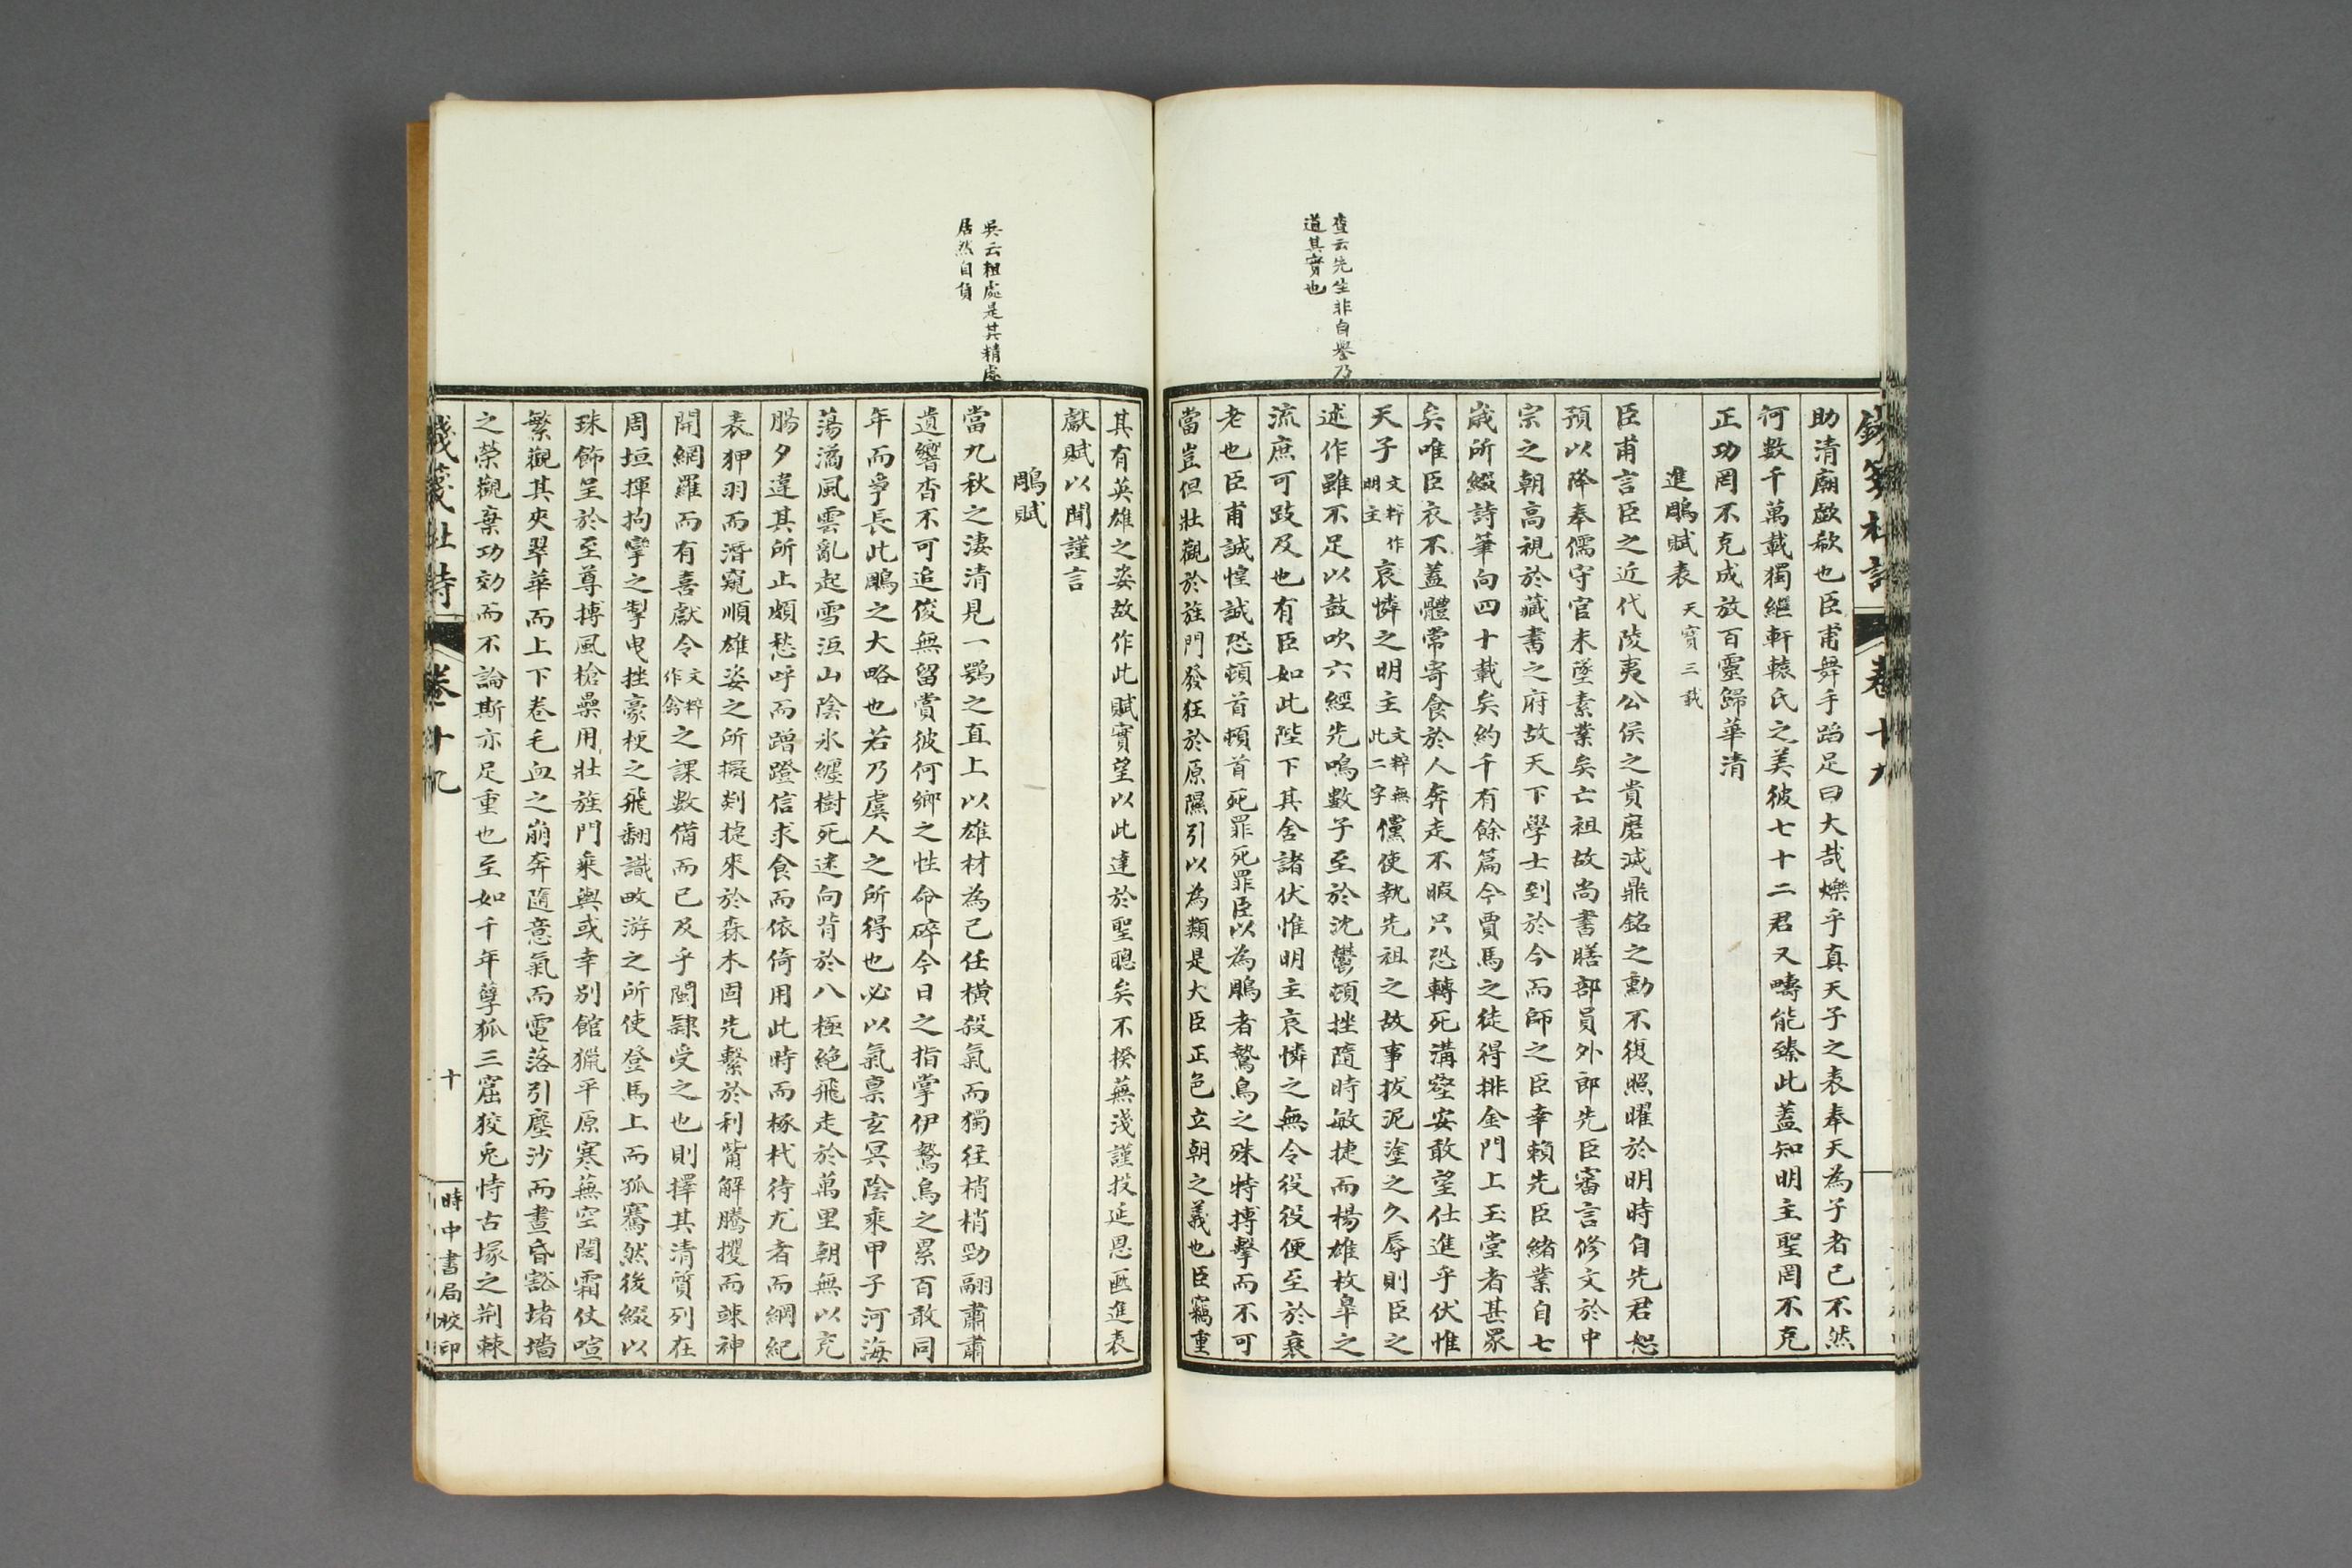 查云先生非自譽乃
道其實也
助清廟歔欷也臣甫舞手蹈足曰大哉爍乎真天子之表奉天為子者已不然
何數千萬載獨繼軒轅氏之美彼七十二君又疇能臻此蓋知明主聖罔不克
正功罔不克成放百靈歸華清
進鵰賦表天寶三載
臣甫言臣之近代陵夷公侯之貴磨滅鼎銘之勳不復照曜於明時自先君恕
預以降奉儒守官未墜素業矣亡祖故尚書膳部員外郎先臣審言修文於中
宗之朝高視於藏書之府故天下學士到於今而師之臣幸賴先臣緒業自七
歲所綴詩筆向四十載矣約千有餘篇今賈馬之徒得排金門上玉堂者甚眾
矣唯臣衣不蓋體常寄食於人奔走不暇只恐轉死溝壑安敢望仕進乎伏惟
天子文粹作明主哀憐之明主文粹無此二字儻使執先祖之故事拔泥塗之久辱則臣之
述作雖不足以鼓吹六經先鳴數子至於沈鬱頓挫隨時敏捷而楊雄枚皋之
流庶可跂及也有臣如此陛下其舍諸伏惟明主哀憐之無令役役便至於衰
老也臣甫誠惶誠恐頓首頓首死罪死罪臣以為鵰者鷙鳥之殊特搏擊而不可
當豈但壯觀於旌門發狂於原隰引以為類是大臣正色立朝之義也臣竊重
吳云粗處是其精處
居然自負
其有英雄之姿故作此賦實望以此達於聖聰矣不揆蕪淺謹投延恩匭進表
獻賦以聞謹言
鵰賦
當九秋之淒清見一鶚之直上以雄材為己任橫殺氣而獨往梢梢勁翮肅肅
遺響杳不可追俊無留賞彼何鄉之性命碎今日之指掌伊鷙鳥之累百敢同
年而爭長此鵰之大略也若乃虞人之所得也必以氣稟玄冥陰乘甲子河海
蕩潏風雲亂起雪沍山陰氷纏樹死迷向背於八極絕飛走於萬里朝無以充
腸夕違其所止頗愁呼而蹭蹬信求食而依倚用此時而椓杙待尤者而綱紀
表狎羽而潛窺順雄姿之所擬欻捷來於森木固先繫於利觜解騰攫而竦神
開網羅而有喜獻令文粹作禽之課數備而已及乎閩隸受之也則擇其清質列在
周垣揮拘攣之掣曳挫豪梗之飛翻識畋游之所使登馬上而孤騫然後綴以
珠飾呈於至尊搏風槍櫐用壯旌門乘輿或幸別館獵平原寒蕪空闊霜仗喧
繁觀其夾翠華而上下卷毛血之崩奔隨意氣而電落引塵沙而晝昏豁堵墻
之榮觀棄功効而不論斯亦足重也至如千年孽狐三窟狡兔恃古塚之荆棘
錢箋杜詩 卷十九 十 時中書局校印